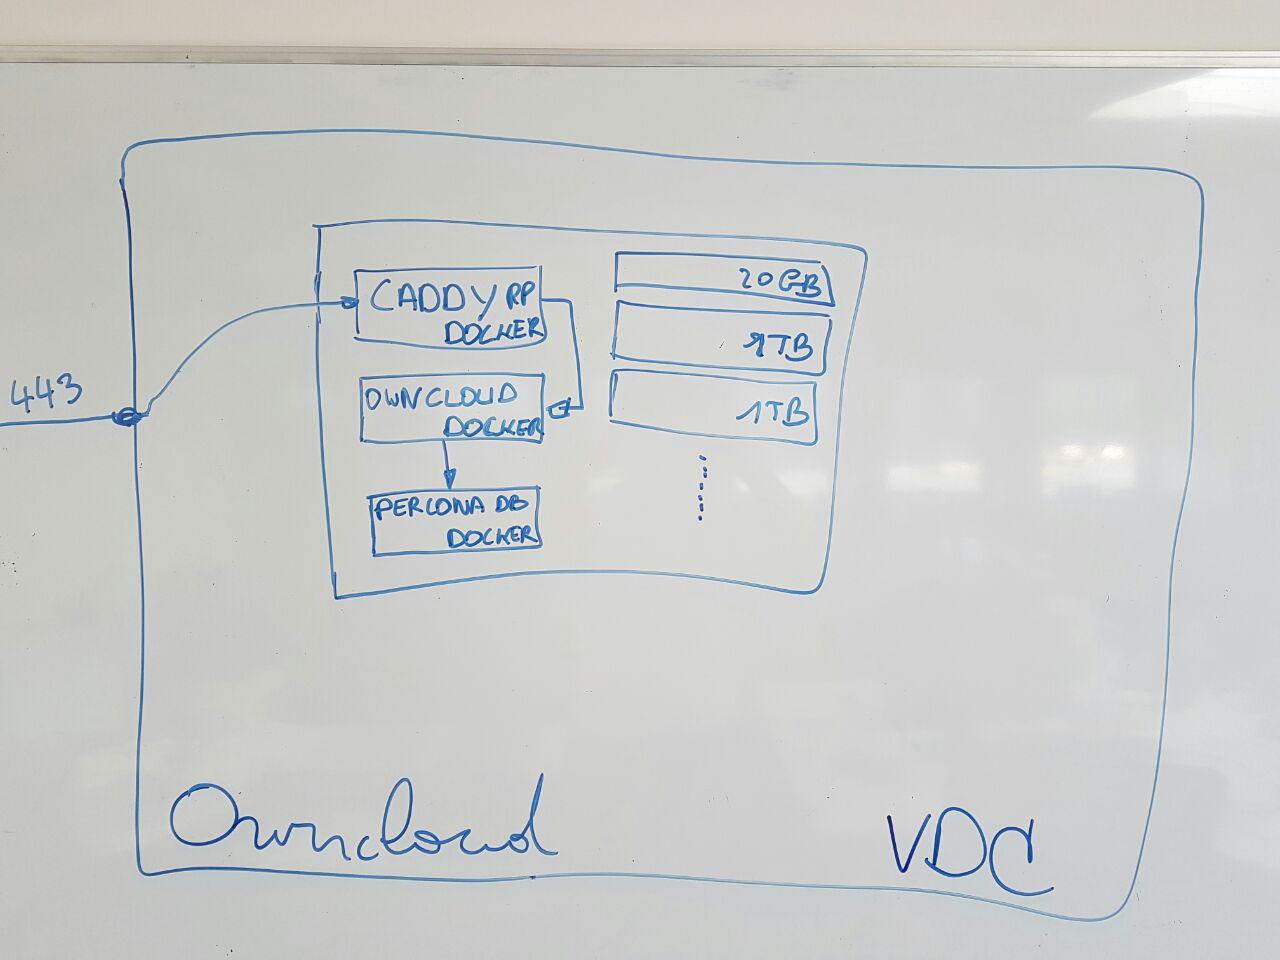 443
CADDY RP
DOCKER
OWNCLOUD
DOCKER
PERCONA DB
DOCKER
20 GB
1TB
1TB
Owncloud
VDC